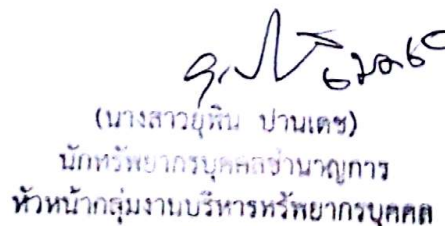 (นางสาวยุพิน ปานเดช)
นักทรัพยากรบุคคลชำนาญการ
หัวหน้ากลุ่มงานบริหารทรัพยากรบุคคล